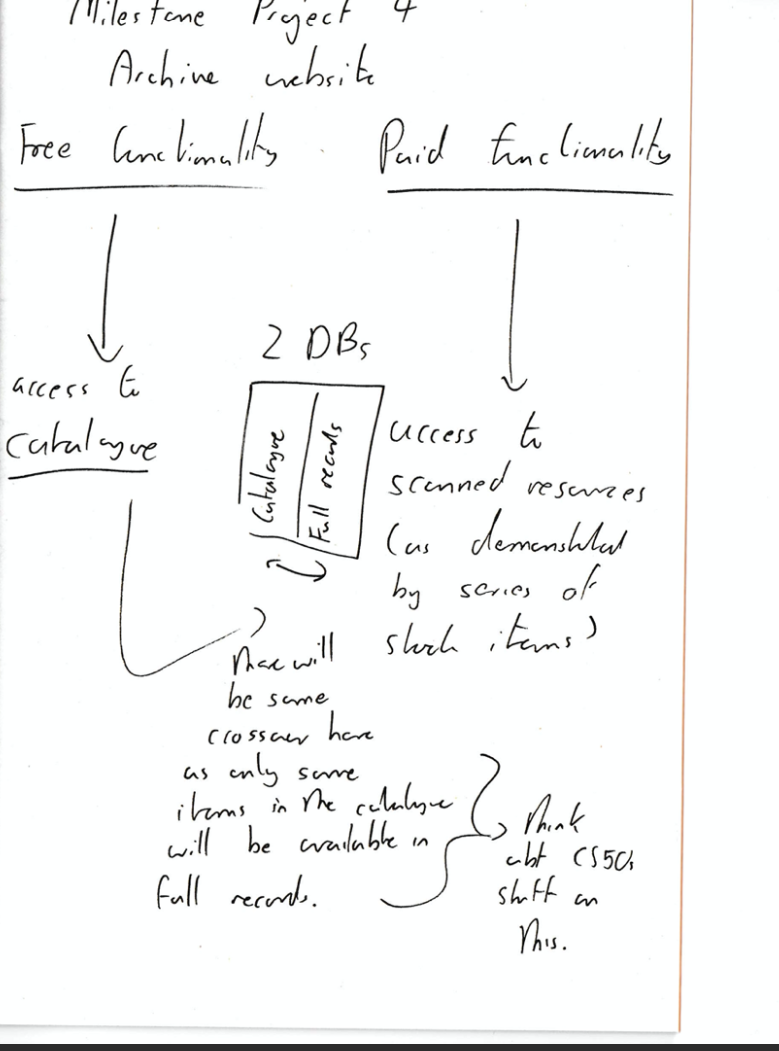 Milestone Project 4
Archive website
Free functionality
Paid functionality
access to
catalogue
2 DBs
Catalogue
Full records
access to
scanned resources
(as demonstrated
by series of
stock items)
There will
be some
crossover here
as only some
items in the catalogue
will be available in
full records.
Think
abt CS50s
stuff on
this.